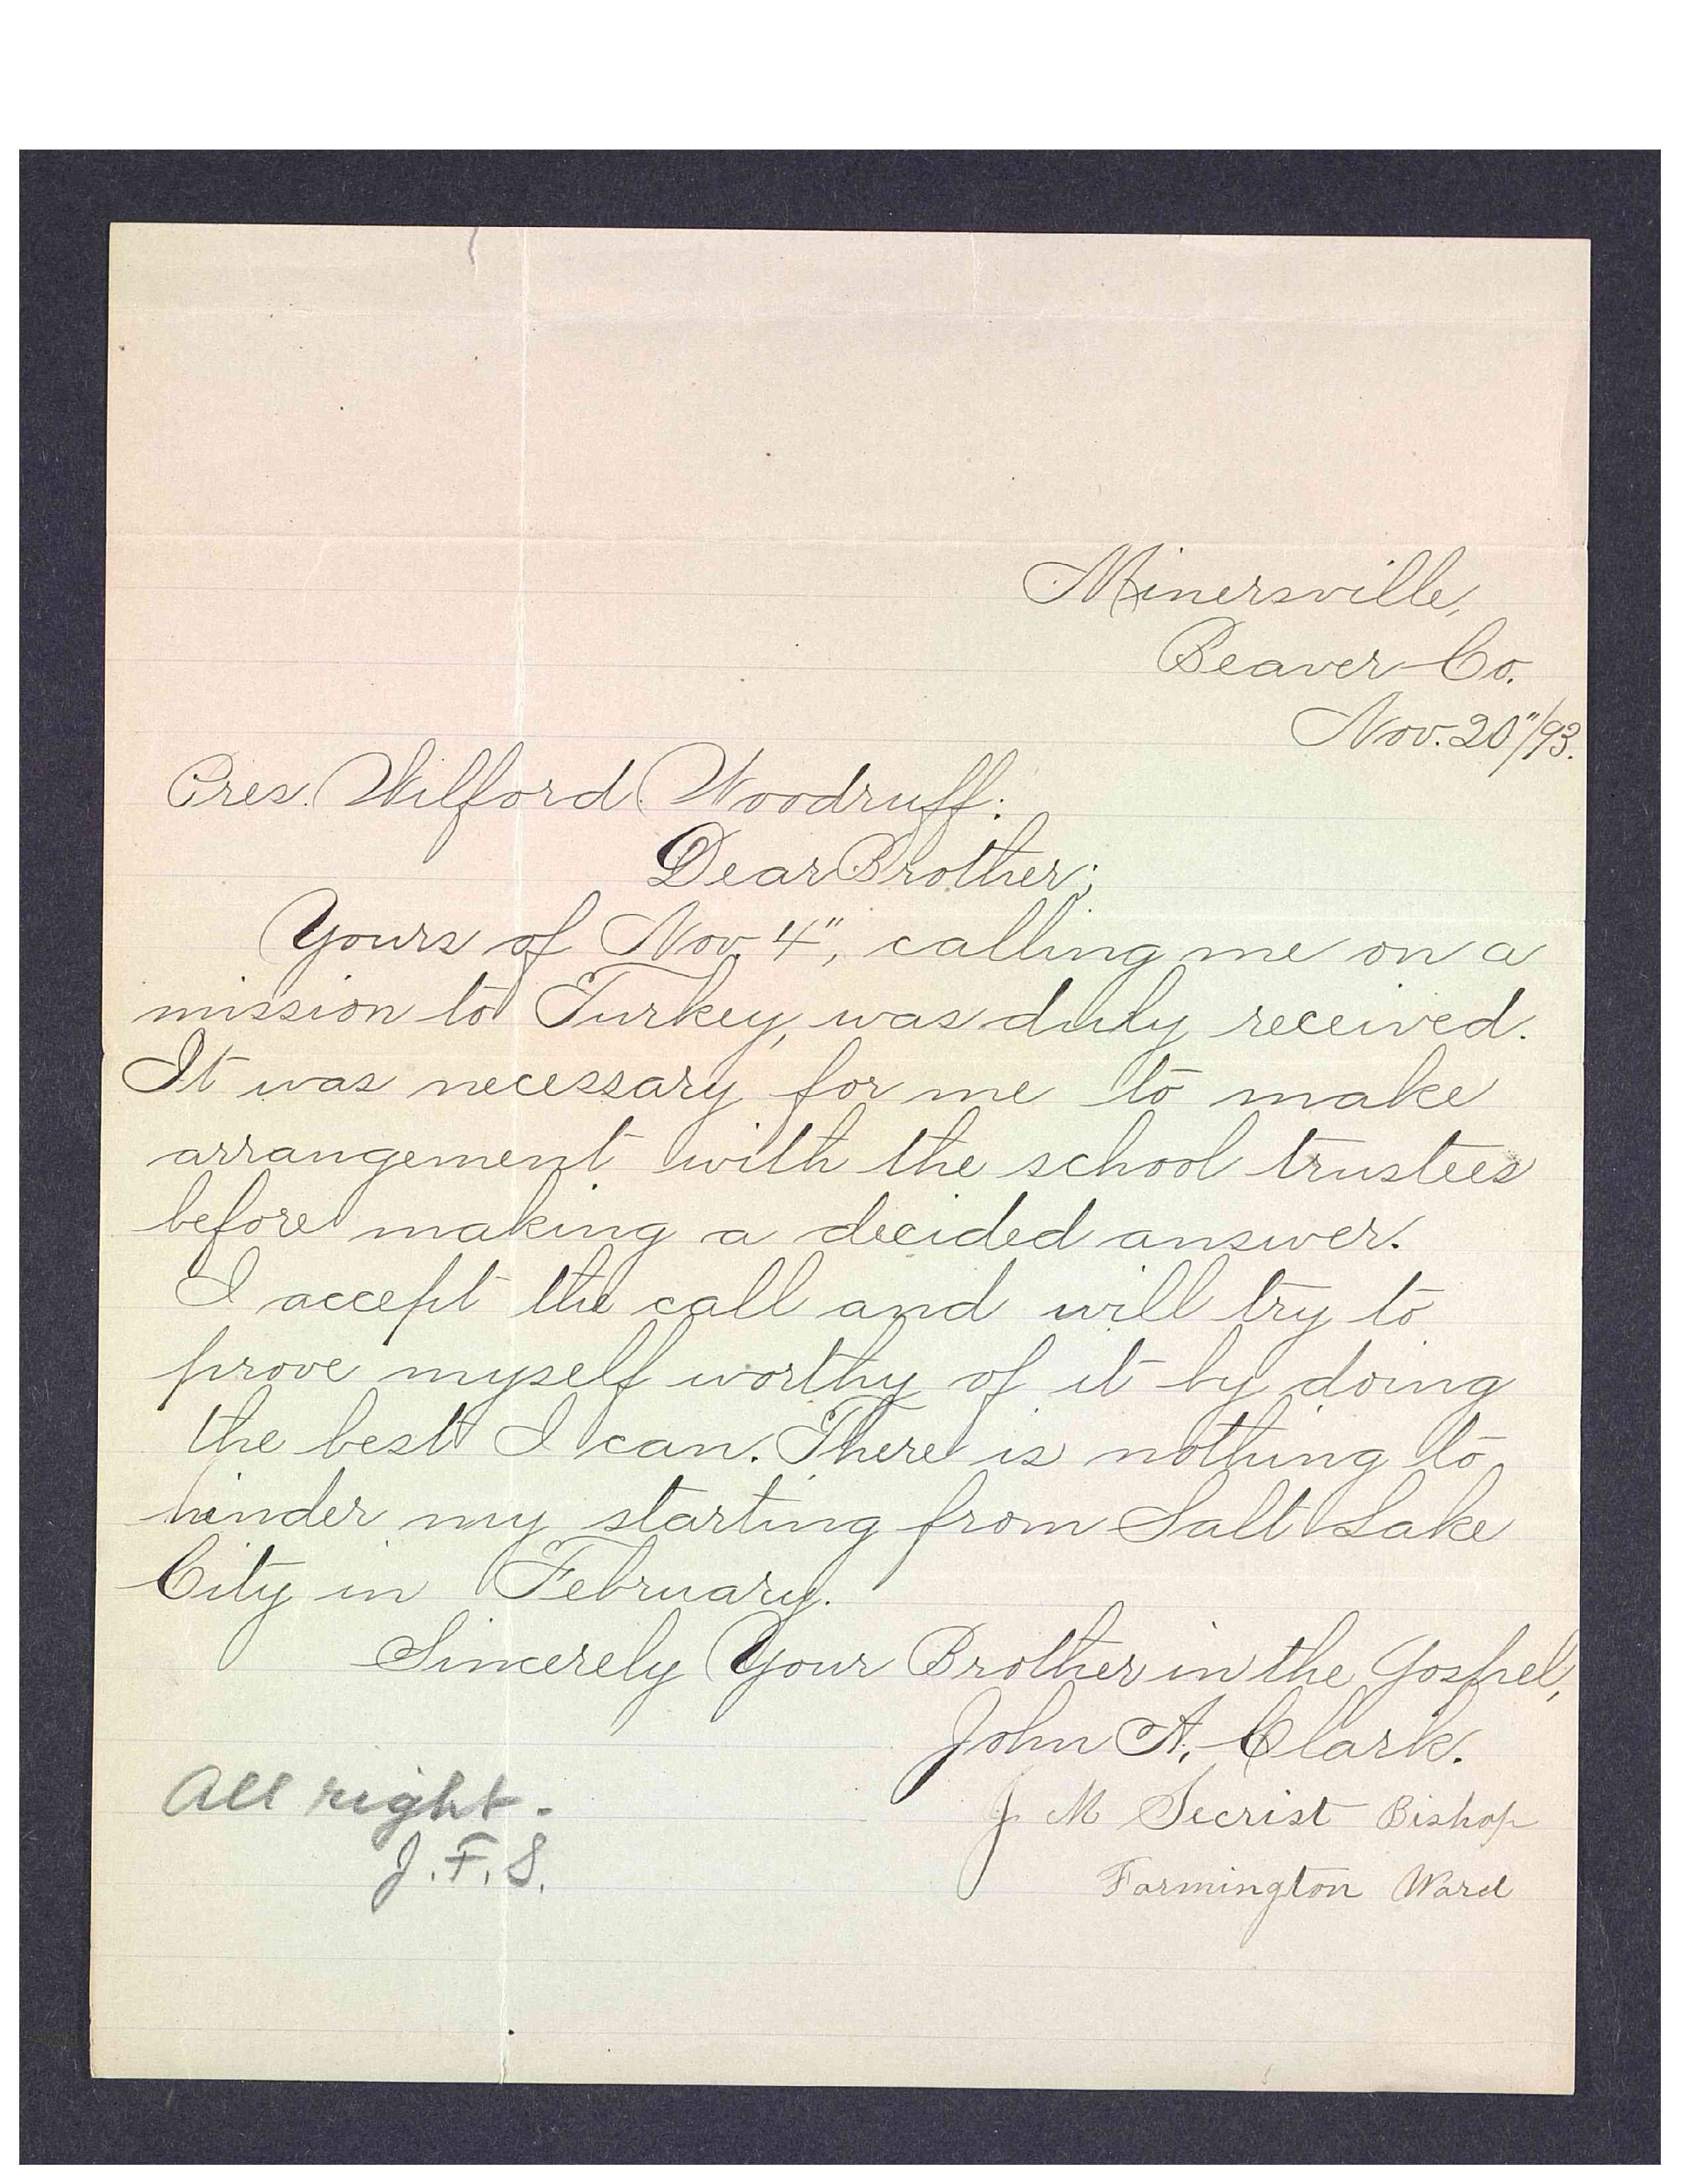 Minersville,
Beaver Co.
Nov. 20"/93.
Pres. Wilford Woodruff:
Dear Brother;
Yours of Nov. 4", calling me on a
mission to Turkey, was duly received.
It was necessary for me to make
arrangement with the school trustees
before making a decided answer.
I accept the call and will try to
prove myself worthy of it by doing
the best I can. There is nothing to
hinder my starting from Salt Lake
City in February.
Sincerely Your Brother in the Gospel,
John A. Clark.
J M Secrist Bishop
Farmington Ward
All right.
J.F.S.